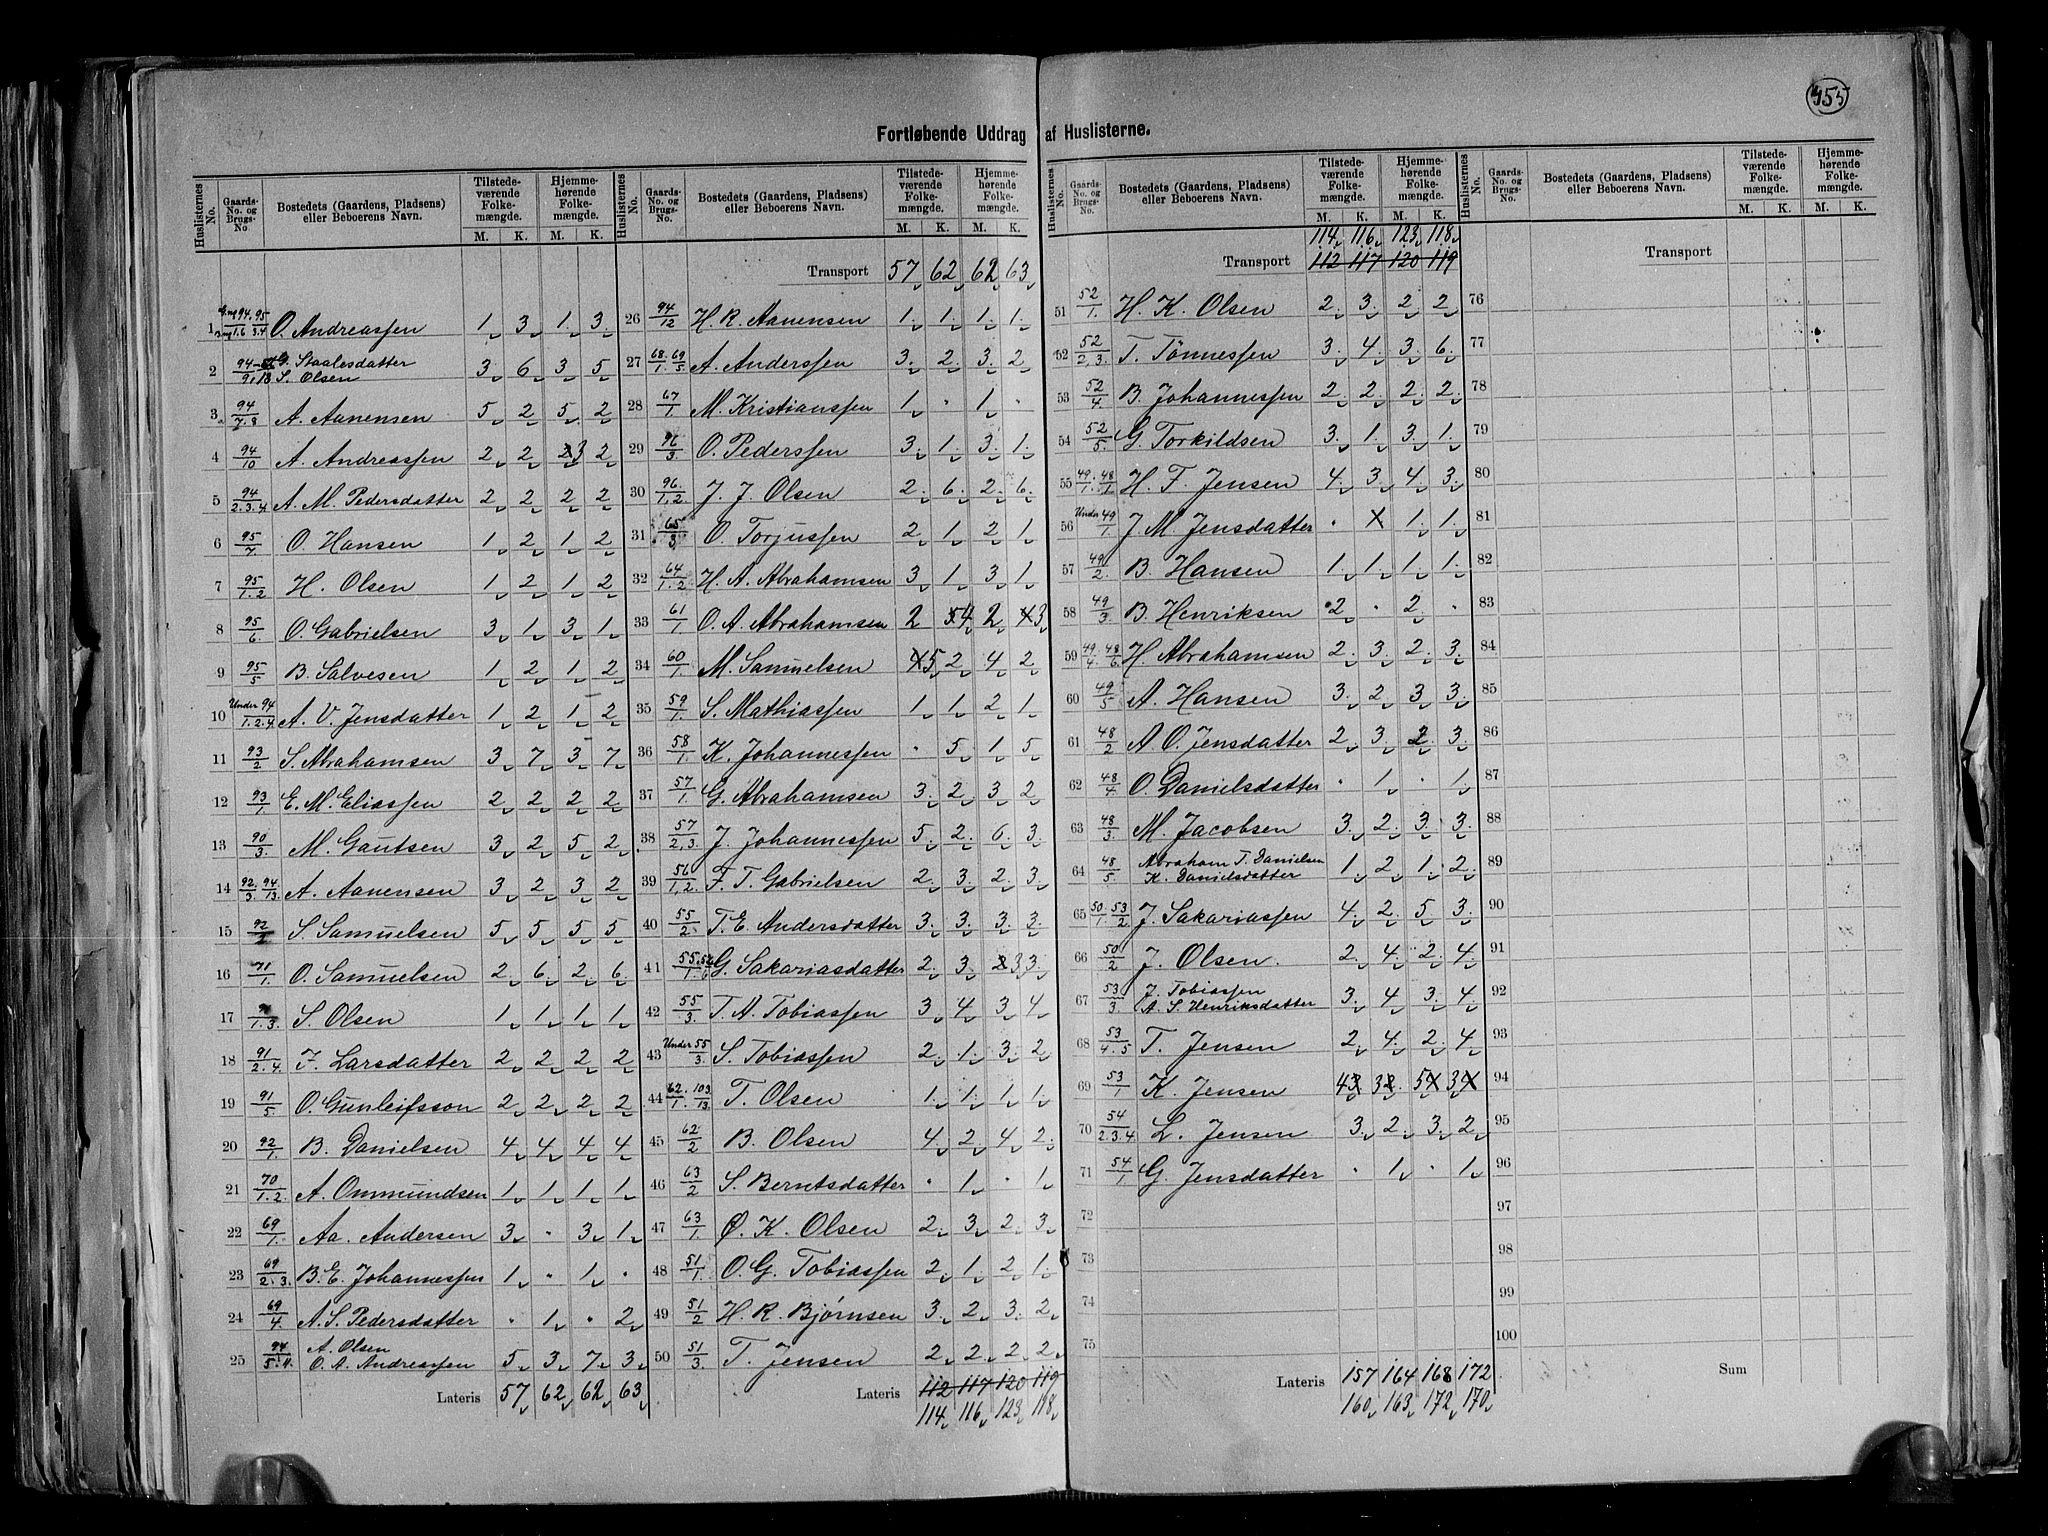 455
Fortløbende Uddrag af Huslisterne.
Huslisternes No. | Gaards-No. og Brugs-No. | Bostedets (Gaardens, Pladsens) eller Beboerens Navn. | Tilstedeværende Folkemængde. M. K. | Hjemmehørende Folkemængde. M. K.
1 O. Andreassen 1 3 1 3
2 G. Staalesdatter S. Olsen 3 6 3 5
3 94/7.8 A. Aanensen 5 2 5 2
4 94/10 A. Andreassen 2 2 3 2
5 94/2.3.4 A. M. Pedersdatter 2 2 2 2
6 95/7 O. Hansen 1 2 1 2
7 95/1.2 H. Olsen 1 2 1 2
8 95/6 O. Gabrielsen 3 1 3 1
9 95/5 B. Salvesen 1 2 1 2
10 Under 94/1.2.4 A. V. Jensdatter 1 2 1 2
11 93/2 S. Abrahamsen 3 7 3 7
12 93/1 E. M. Eliassen 2 2 2 2
13 90/3 M. Gautsen 3 2 5 2
14 92/3. 94/13. A. Aanensen 3 2 3 2
15 92/2 S. Samuelsen 5 5 5 5
16 71/1. O. Samuelsen 2 6 2 6
17 S. Olsen 1 1 1 1
18 91/2.4. F. Larsdatter 2 2 2 2
19 91/5. O. Gunleifsson 2 2 2 2
20 92/1. B. Danielsen 4 4 4 4
21 70/1.2. A. Ommundsen 1 1 1 1
22 69/1. Aa. Andersen 3 " 3 1
23 69/2.3. B. E. Johannessen 1 " 1 "
24 69/4 A. S. Pedersdatter " 1 " 2
25 94/5.11. A. Olsen O. A. Andreassen 5 3 7 3
Lateris 57 62 62 63
Huslisternes No. | Gaards-No. og Brugs-No. | Bostedets (Gaardens, Pladsens) eller Beboerens Navn. | Tilstedeværende Folkemængde. M. K. | Hjemmehørende Folkemængde. M. K.
Transport 57 62 62 63
26 94/12 H. R. Aanensen 1 1 1 1
27 68/1. 69/5. A. Anderssen 3 2 3 2
28 67/1 M. Kristianssen 1 " 1 "
29 96/3. O. Pederssen 3 1 3 1
30 96/1.2. J. J. Olsen 2 6 2 6
31 65/3 O. Torjussen 2 1 2 1
32 64/1.2 H. A. Abrahamsen 3 1 3 1
33 61/1 O. A. Abrahamsen 2 4 2 3
34 60/1. M. Samuelsen 5 2 4 2
35 59/1. S. Mathiassen 1 1 2 1
36 58/1. K. Johannessen " 5 1 5
37 57/1. G. Abrahamsen 3 2 3 2
38 57/2,3. J. Johannessen 5 2 6 3
39 56/1,2. F. T. Gabrielsen 2 3 2 3
40 55/2. T. E. Andersdatter 3 3 3 3
41 G. Sakariasdatter 2 3 3 3
42 55/3. T. A. Tobiassen 3 4 3 4
43 Under 55/3. S. Tobiassen 2 1 3 2
44 62/1. 103/13. T. Olsen 1 1 1 1
45 62/2 B. Olsen 4 2 4 2
46 63/2 S. Berntsdatter " 1 " 1
47 63/1. O. K. Olsen 2 3 2 3
48 51/1. O. G. Tobiassen 2 1 2 1
49 51/2 H. R. Bjørnsen 3 2 3 2
50 51/3. T. Jensen 2 2 2 2
Lateris 112 117 120 119
114 116 123 118
Huslisternes No. | Gaards-No. og Brugs-No. | Bostedets (Gaardens, Pladsens) eller Beboerens Navn. | Tilstedeværende Folkemængde. M. K. | Hjemmehørende Folkemængde. M. K.
114 116 123 118
Transport 112 117 120 119
51 52/1. H. K. Olsen 2 3 2 2
52 52/2,3. T. Tönnessen 3 4 3 6
53 52/4. B. Johannessen 2 2 2 2
54 52/5. G. Torkildsen 3 1 3 1
55 49/1. 48/1 H. F. Jensen 4 3 4 3
56 Under 49/1. J. M. Jensdatter " X 1 1
57 49/2. B. Hansen 1 1 1 1
58 49/3. B. Henriksen 2 " 2 "
59 49/4. 48/6. H. Abrahamsen 2 3 2 3
60 49/5 A. Hansen 3 2 3 3
61 48/2 A. O. Jensdatter 2 3 2 3
62 48/4. O. Danielsdatter " 1 " 1
63 48/3. M. Jacobsen 3 2 3 3
64 48/5 Abraham T. Danielsen K. Danielsdatter 1 2 1 2
65 50/1. 53/2. J. Sakariassen 4 2 5 3
66 50/2 J. Olsen 2 4 2 4
67 53/3 J. Tobiassen A. S. Henriksdatter 3 4 3 4
68 53/4.5 T. Jensen 2 4 2 4
69 53/1 K. Jensen 4 3 5 3
70 54/2.3.4 L. Jensen 3 2 3 2
71 54/1 G. Jensdatter " 1 " 1
72
73
74
75
Lateris 157 164 168 172
160 163 172 170
Huslisternes No. | Gaards-No. og Brugs-No. | Bostedets (Gaardens, Pladsens) eller Beboerens Navn. | Tilstedeværende Folkemængde. M. K. | Hjemmehørende Folkemængde. M. K.
Transport
76
77
78
79
80
81
82
83
84
85
86
87
88
89
90
91
92
93
94
95
96
97
98
99
100
Sum